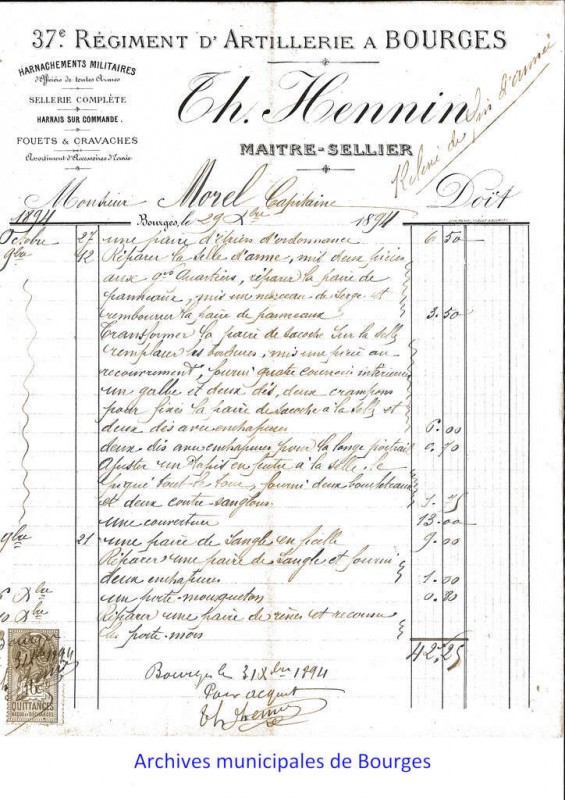 37e RÉGIMENT D'ARTILLERIE A BOURGES
HARNACHEMENTS MILITAIRES
d'Officiers de toutes Armes
SELLERIE COMPLÈTE
HARNAIS SUR COMMANDE.
FOUETS & CRAVACHES
Assortiment d'Accessoires d'Ecurie
Th. Hennin
MAITRE-SELLIER
Relevé de fin d'année
Monsieur Morel Capitaine Doit
1894 Bourges, le 29 Xbre 1894
Octobre 27 une paire d'étrier d'ordonnance 6.50
9bre 12 Réparer la selle d'arme, mis deux pièces
aux Quartiers, réparer la paire de
panneaux, mis un morceau de Serge et
rembourrer la paire de panneaux 3.50
Transformer la paire de sacoche sur la selle
remplacer les , mis une pièce au
recouvrement, fourni quatre intérieur
un galbe et deux dés, deux crampons
pour fixer la paire de sacoche à la selle et
deux dés avec enchapures 6.00
deux dés avec enchapures pour la longe poitrail 0.70
Ajuster un tapis en feutre à la selle, le
piqué tout le tour, fourni deux
et deux contre sanglons 1.75
une couverture 13.00
9bre 21 une paire de Sangle en ficelle 9.00
Réparer une paire de Sangle et fourni
deux enchapures 1.00
6 Xbre un porte-mousqueton 0.80
10 Xbre Réparer une paire de rênes et recousu
les porte-mors
42.25
Bourges le 31 Xbre 1894
Pour acquit
Th Hennin
31 X 94
10c
QUITTANCES
Archives municipales de Bourges